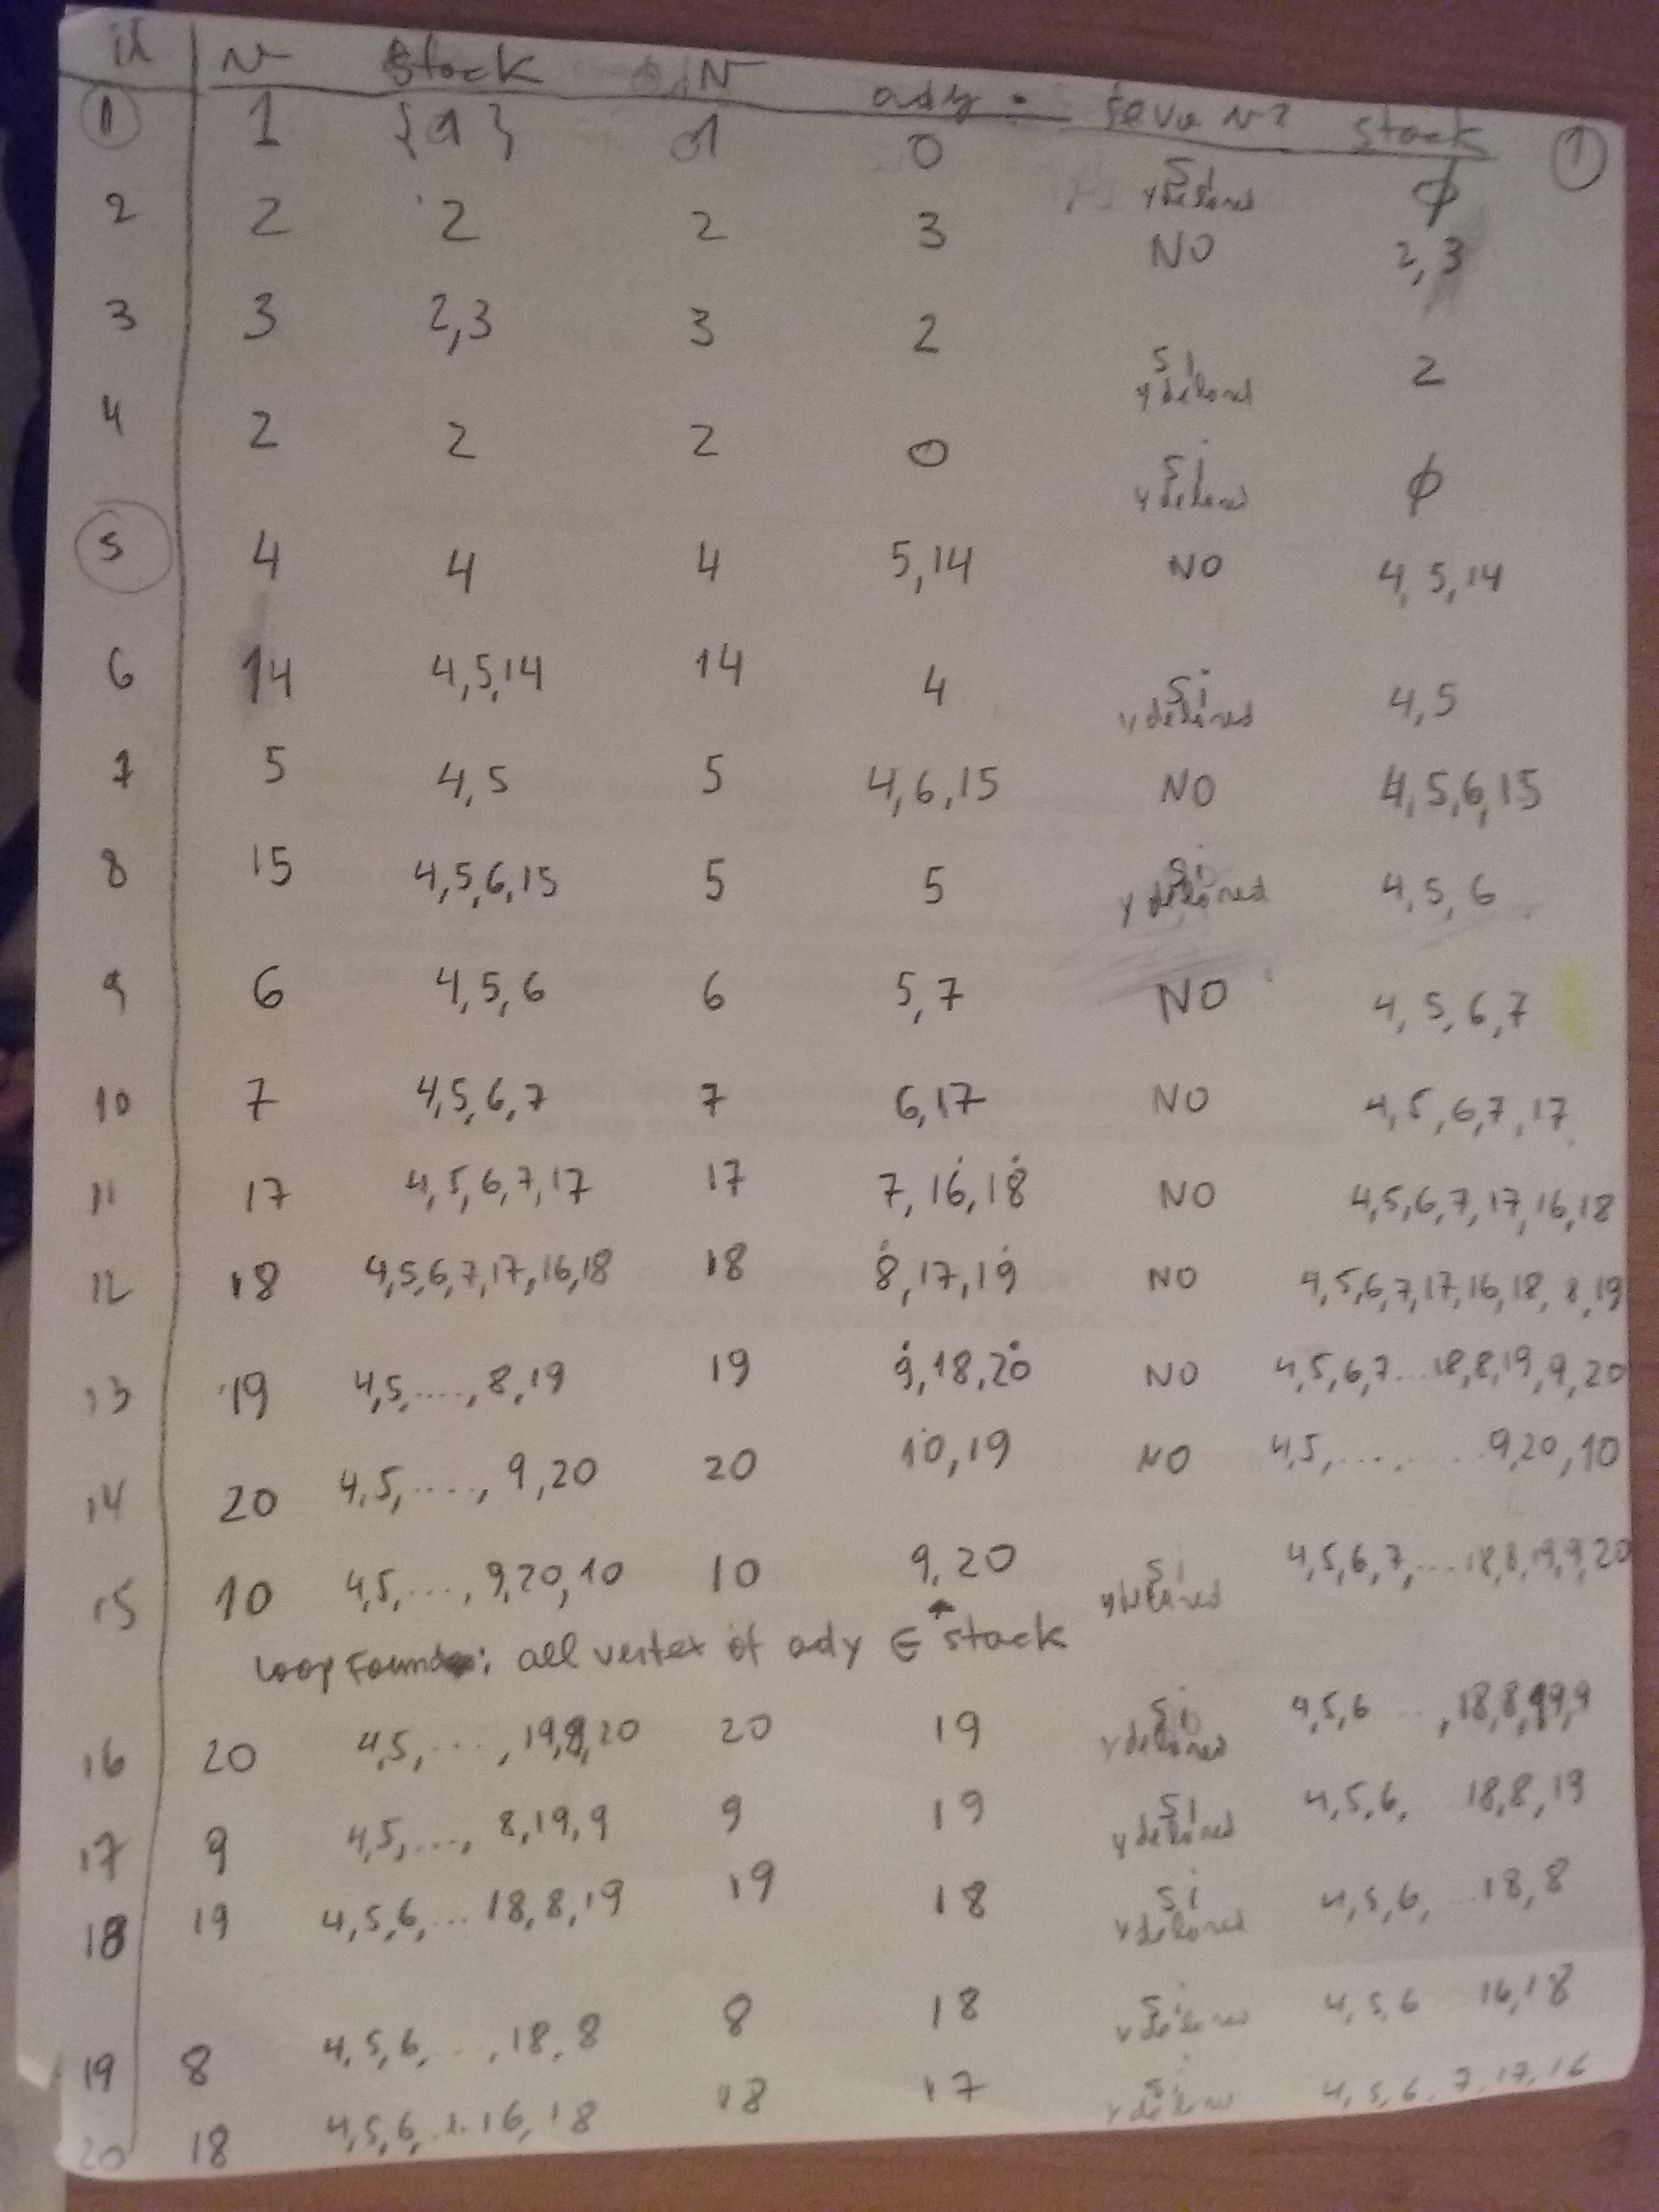 it N stack N ady. stack 1
1 1 {1} 1 0 Si ∅
2 2 2 2 3 NO 2,3
3 3 2,3 3 2 Si 2
4 2 2 2 0 Si ∅
5 4 4 4 5,14 NO 4,5,14
6 14 4,5,14 14 4 Si 4,5
7 5 4,5 5 4,6,15 NO 4,5,6,15
8 15 4,5,6,15 5 5 Si 4,5,6
9 6 4,5,6 6 5,7 NO 4,5,6,7
10 7 4,5,6,7 7 6,17 NO 4,5,6,7,17
11 17 4,5,6,7,17 17 7,16,18 NO 4,5,6,7,17,16,18
12 18 4,5,6,7,17,16,18 18 8,17,19 NO 4,5,6,7,17,16,18,8,19
13 19 4,5,....,8,19 19 9,18,20 NO 4,5,6,7...18,8,19,9,20
14 20 4,5,....,9,20 20 10,19 NO 4,5,.......9,20,10
15 10 4,5,....,9,20,10 10 9,20 Si 4,5,6,7,...18,8,19,9,20
Loop Found: all vertex of ady ∈ stack
16 20 4,5,...,19,9,20 20 19 Si 4,5,6 ..,18,8,19,9
17 9 4,5,...,8,19,9 9 19 Si 4,5,6, 18,8,19
18 19 4,5,6,...18,8,19 19 18 Si 4,5,6,...18,8
19 8 4,5,6,...,18,8 8 18 Si 4,5,6 16,18
20 18 4,5,6,...16,18 18 17 Si 4,5,6,7,17,16